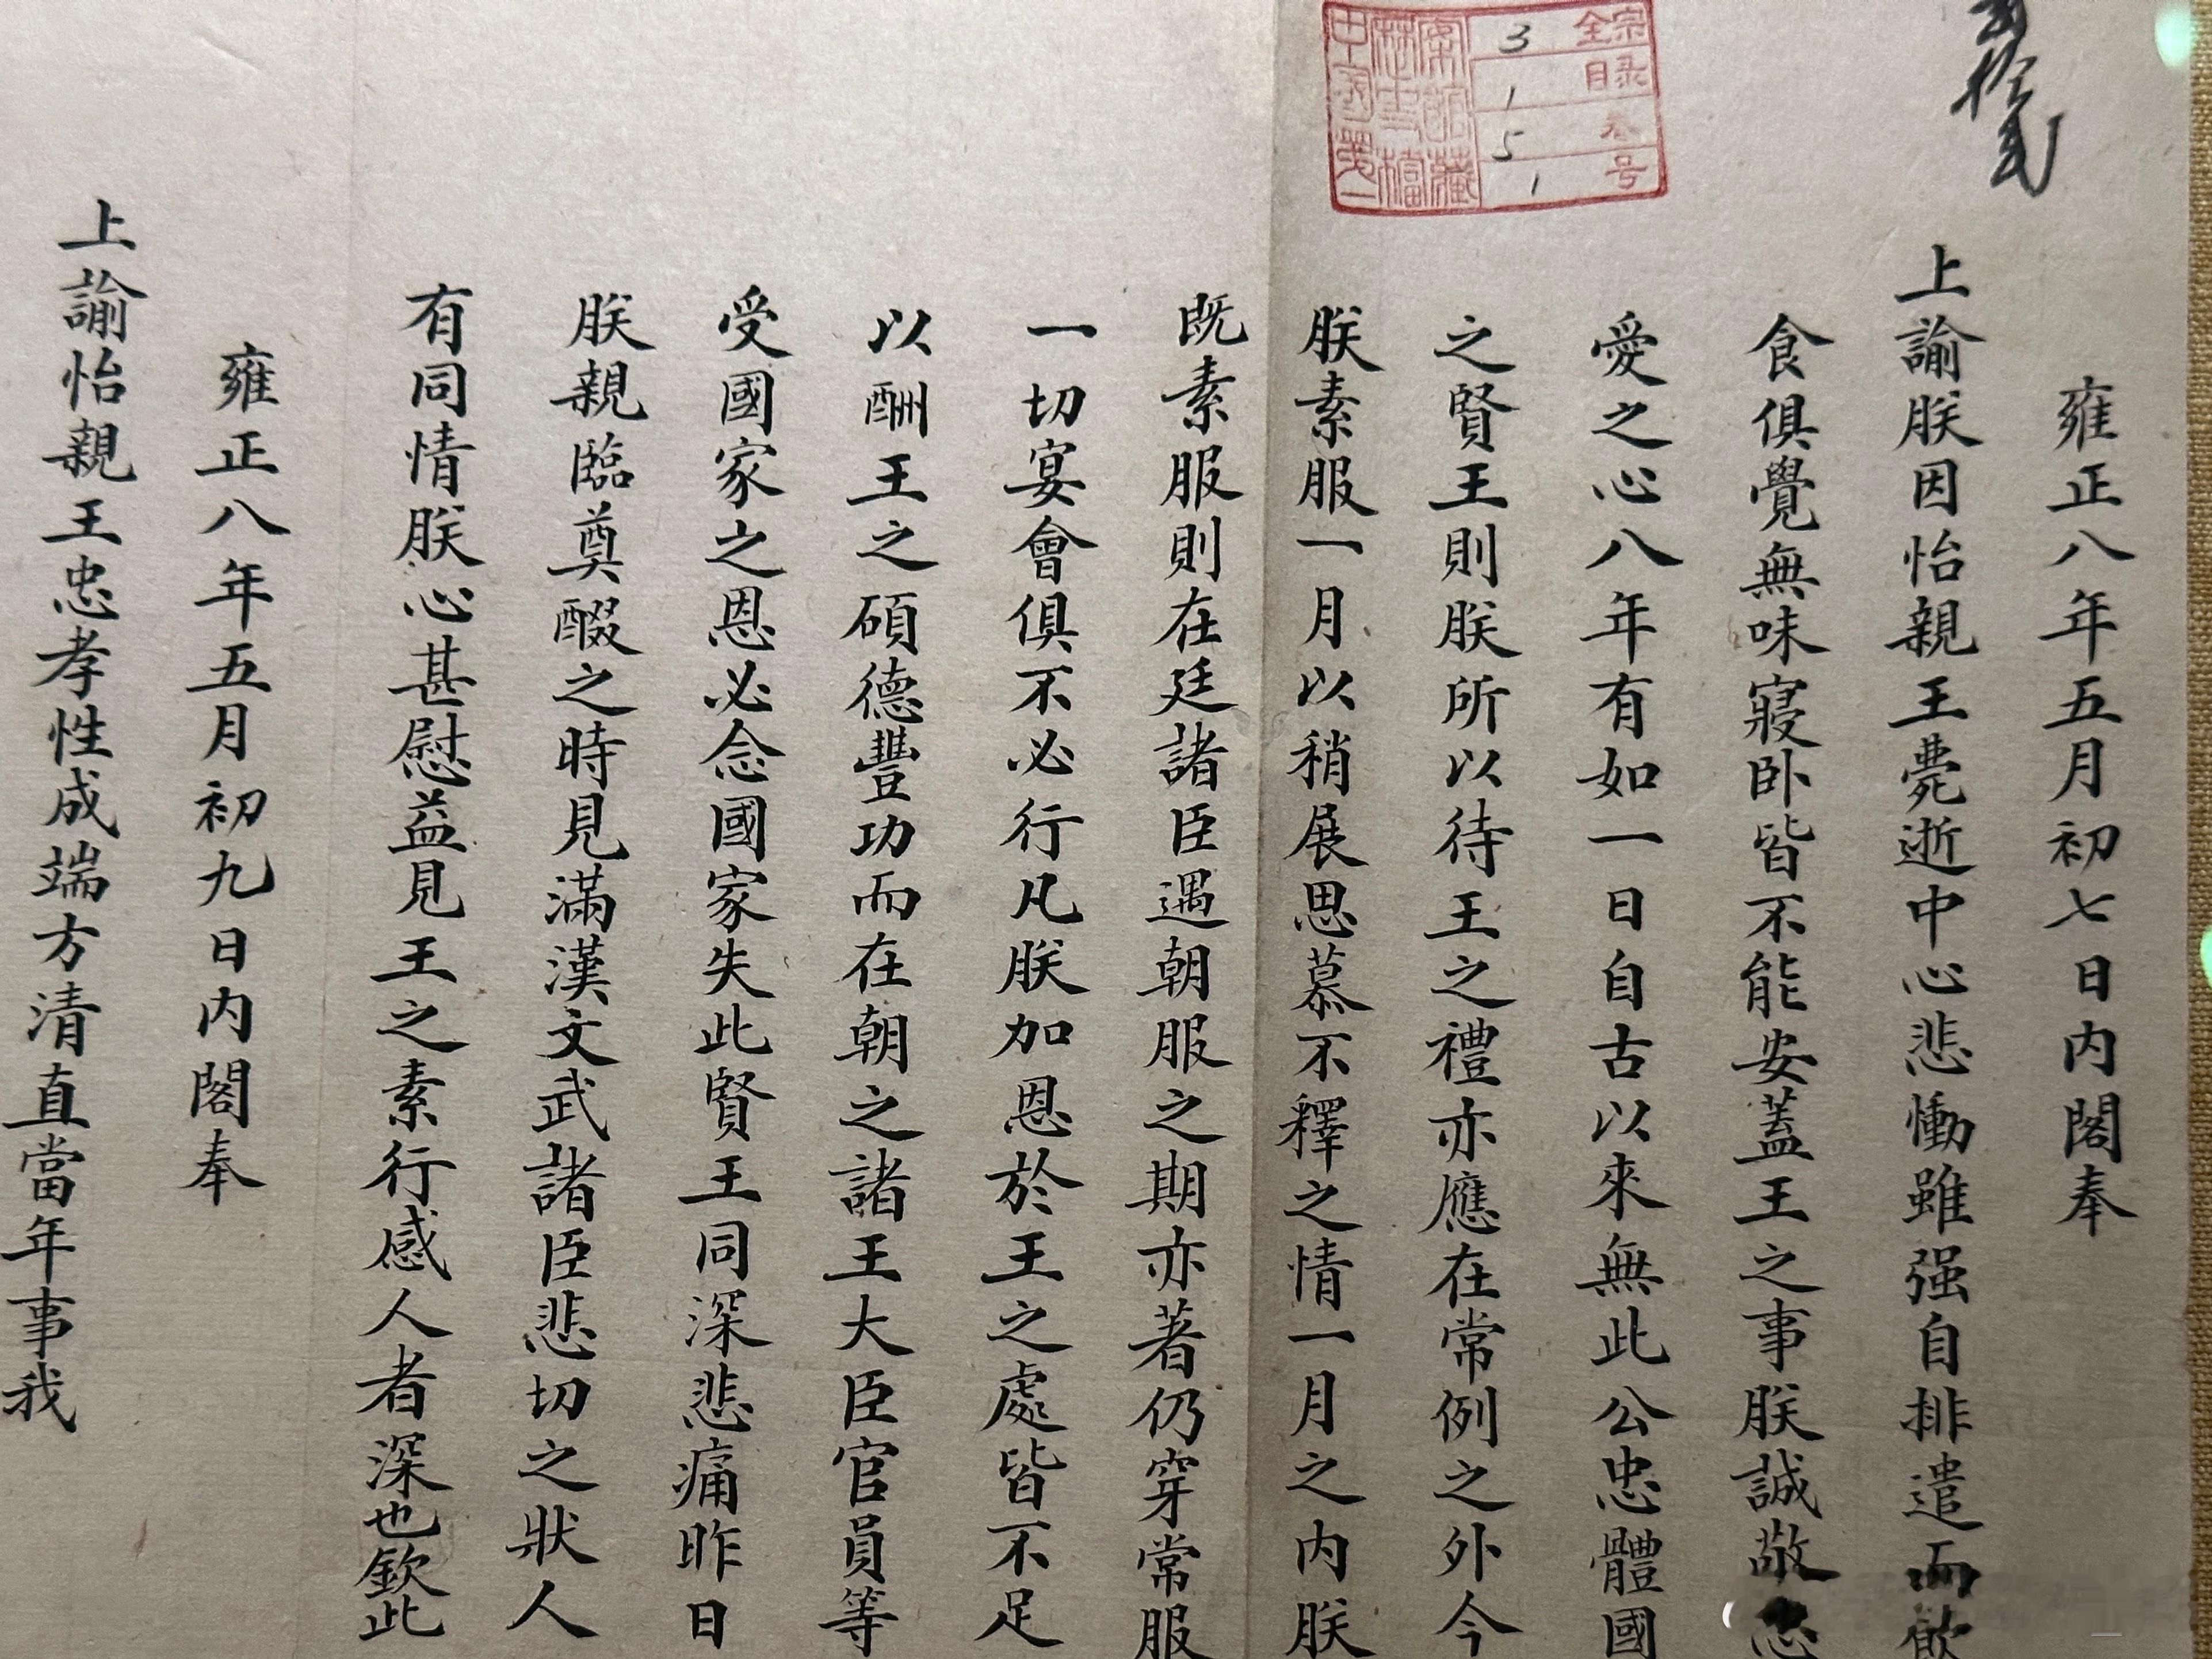 雍正八年五月初七日内閣奉
上諭朕因怡親王薨逝中心悲慟雖强自排遣而飲
食俱覺無味寢卧皆不能安蓋王之事朕誠敬忠
愛之心八年有如一日自古以來無此公忠體國
之賢王則朕所以待王之禮亦應在常例之外今
朕素服一月以稍展思慕不釋之情一月之内朕
既素服則在廷諸臣遇朝服之期亦著仍穿常服
一切宴會俱不必行凡朕加恩於王之處皆不足
以酬王之碩德豐功而在朝之諸王大臣官員等
受國家之恩必念國家失此賢王同深悲痛昨日
朕親臨奠醊之時見滿漢文武諸臣悲切之狀人
有同情朕心甚慰益見王之素行感人者深也欽此
雍正八年五月初九日内閣奉
上諭怡親王忠孝性成端方清直當年事我
全宗 3
目录 1
卷 5
号 1
中國第一
歷史檔
案館藏